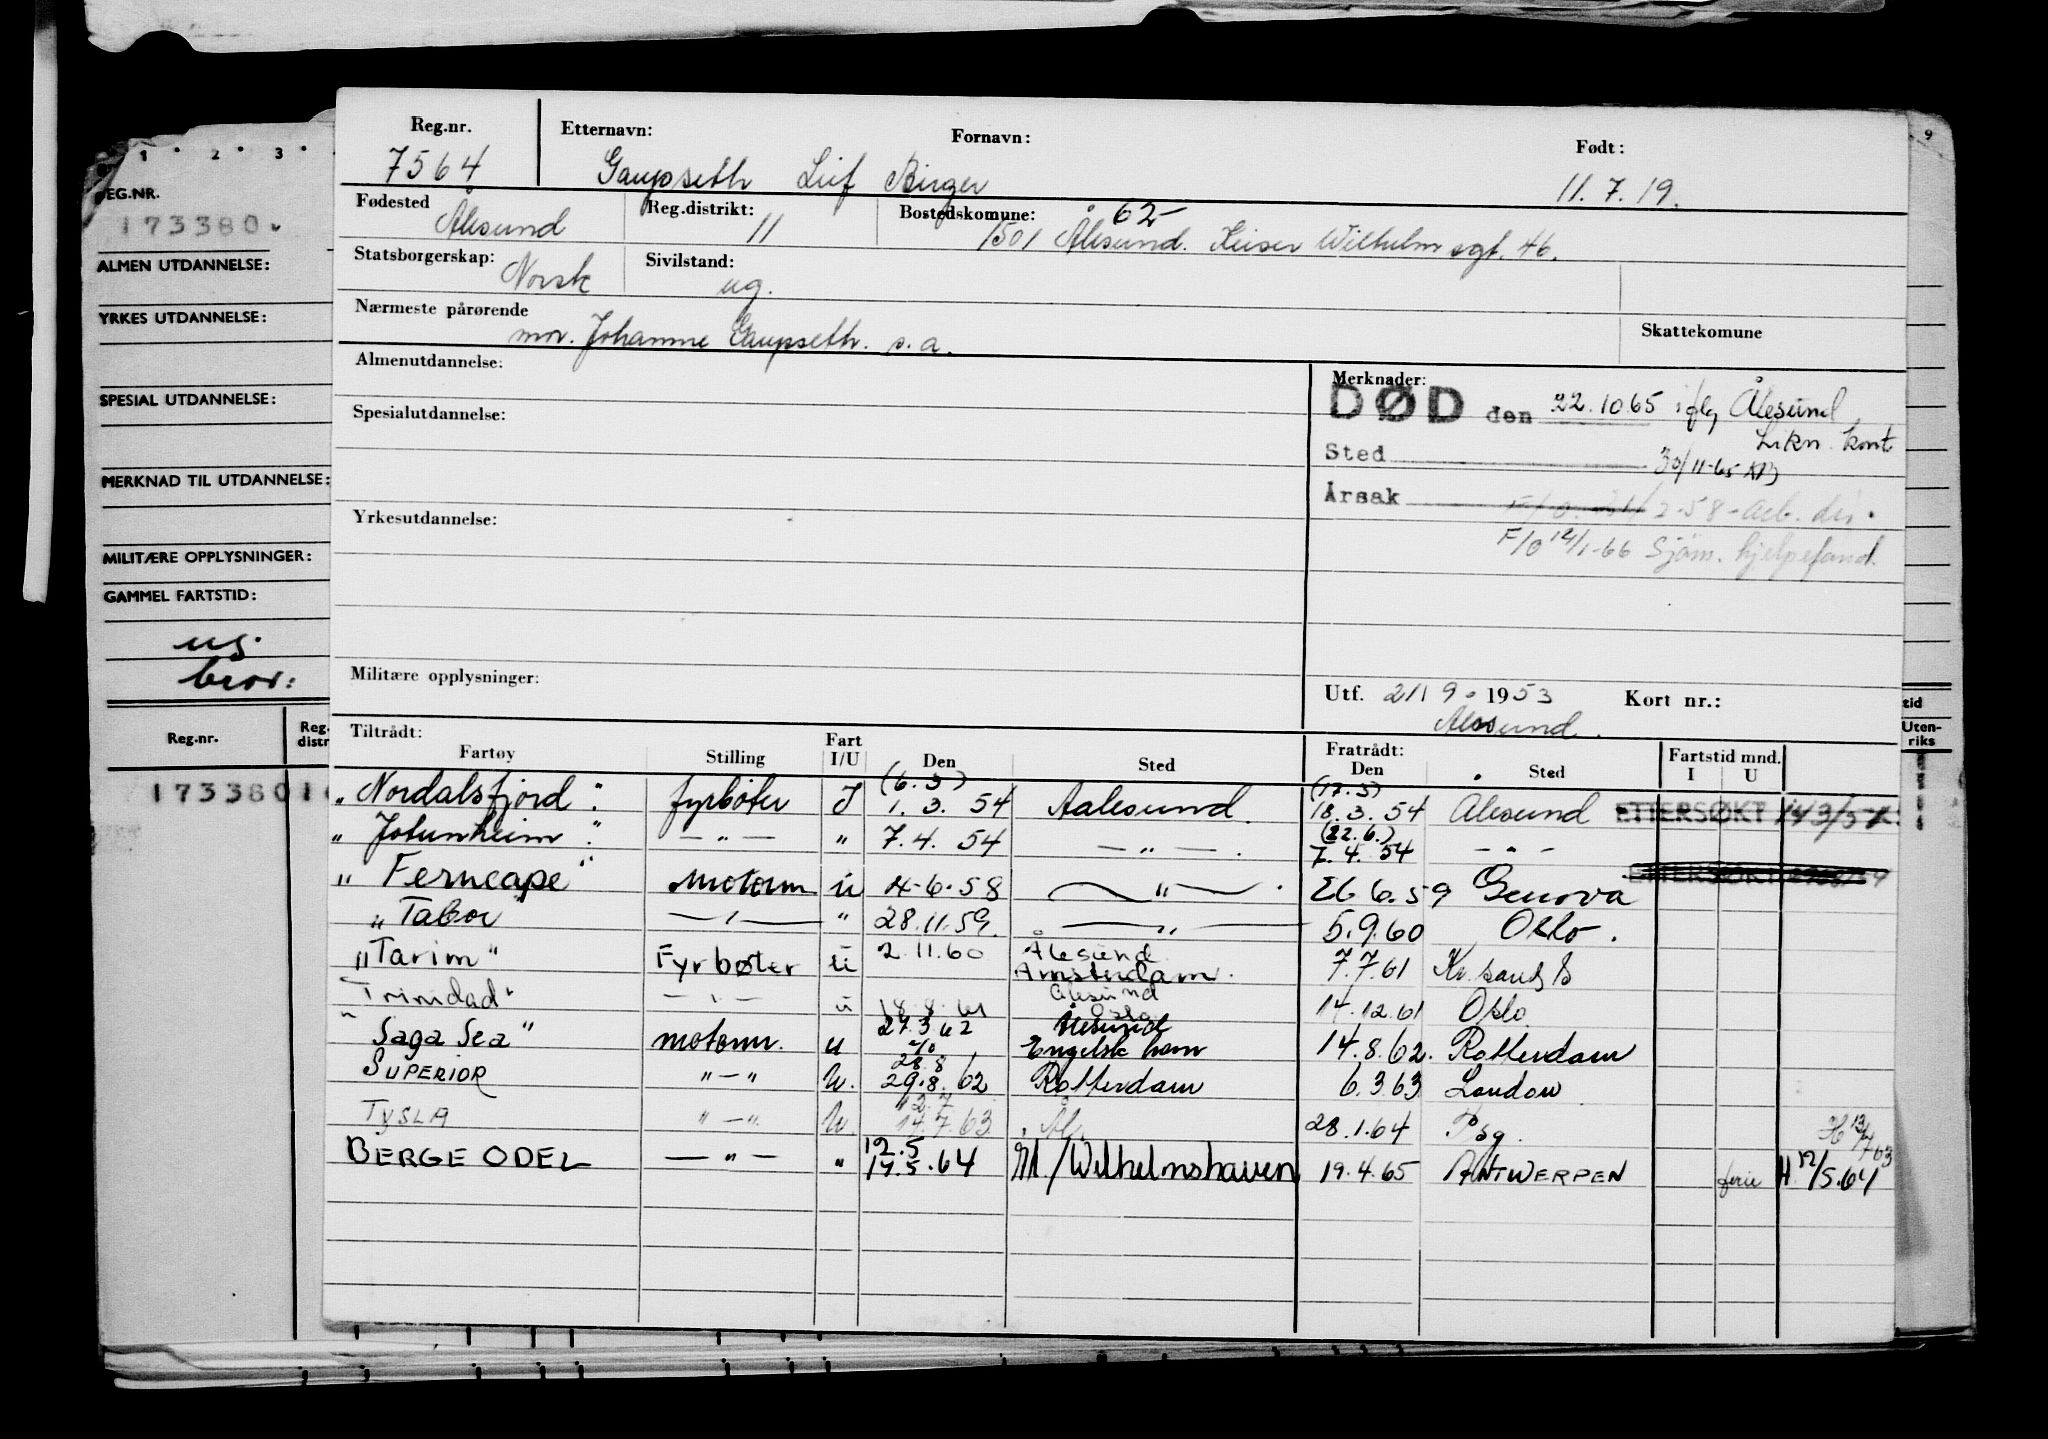 1 . 2 . 3
9
REG.NR.
173380
ALMEN UTDANNELSE:
YRKES UTDANNELSE:
SPESIAL UTDANNELSE:
MERKNAD TIL UTDANNELSE:
MILITÆRE OPPLYSNINGER:
GAMMEL FARTSTID:
ug.
bror:
Reg.nr.
Reg. distr
173380 1
tid
Uten-
riks
Reg.nr. Etternavn: Fornavn: Født:
7564 Gaupseth Leif Birger 11.7.19.
Fødested Reg.distrikt: Bostedskomune: 62
Ålesund 11 1501 Ålesund. Keiser Wilhelm sgt. 46.
Statsborgerskap: Norsk Sivilstand: ug.
Nærmeste pårørende Skattekomune
mor. Johanne Gaupseth. s.a.
Almenutdannelse: Merknader:
DØD den 22.10 65 iflg Ålesund
Spesialutdannelse: Likn. kont
Sted 30/11-65
Årsak 2-58-
Yrkesutdannelse:
F/O 14/1-66 Sjøm. hjelpefond.
Militære opplysninger: Utf. 21/9. 1953 Kort nr.:
Ålesund.
Tiltrådt: Fratrådt:
Fartøy Stilling Fart I/U Den Sted Den Sted Fartstid mnd. I U
(6.3) (17.3)
„Nordalsfjord". fyrbøter I 1.3. 54 Aalesund. 18.3.54 Ålesund ETTERSØKT
(22.6.)
„Jotunheim". — „ — „ 7.4. 54 — „ — . 7.4. 54 — „ —
„Ferncape" motorm u 4-6-58 — „ — . 26 6.59 Genova ETTERSØKT
„Tabor" — „ — „ 28.11.59. — „ — 5.9.60 Oslo.
„Tarim" Fyrbøter u 2.11.60 Ålesund Amsterdam. 7.7.61 Kr.sand S
Trinidad" — „ — u 18.8.61 Ålesund Oslo 14.12.61 Oslo
"Saga Sea" motorm. u 27.3 62 Ålesund Engelsk havn 14.8.62. Rotterdam
28.8
SUPERIOR „ — „ U. 29.8.62 Rotterdam 6.3 63 London
12.7
TYSLA „ — „ U. 14.7.63 Ål. 28.1.64 Psg. H 12/7 63
12.5
BERGE ODEL — „ — „ 17.5.64 Ål./Wilhelmshaven 19.4.65 ANTWERPEN ferie H 12/5.64